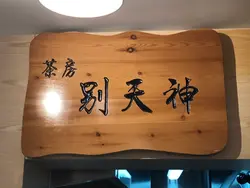 茶房
别天神